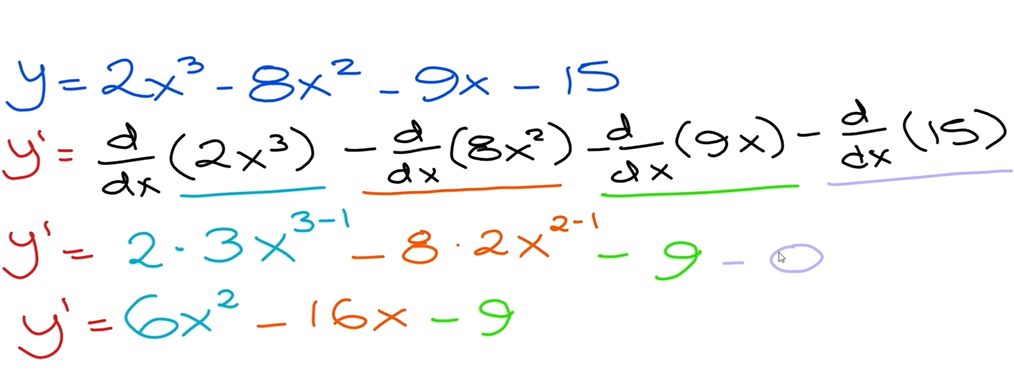 y = 2x³ - 8x² - 9x - 15
y' = d/dx (2x³) - d/dx (8x²) - d/dx (9x) - d/dx (15)
y' = 2 · 3x³⁻¹ - 8 · 2x²⁻¹ - 9 - 0
y' = 6x² - 16x - 9